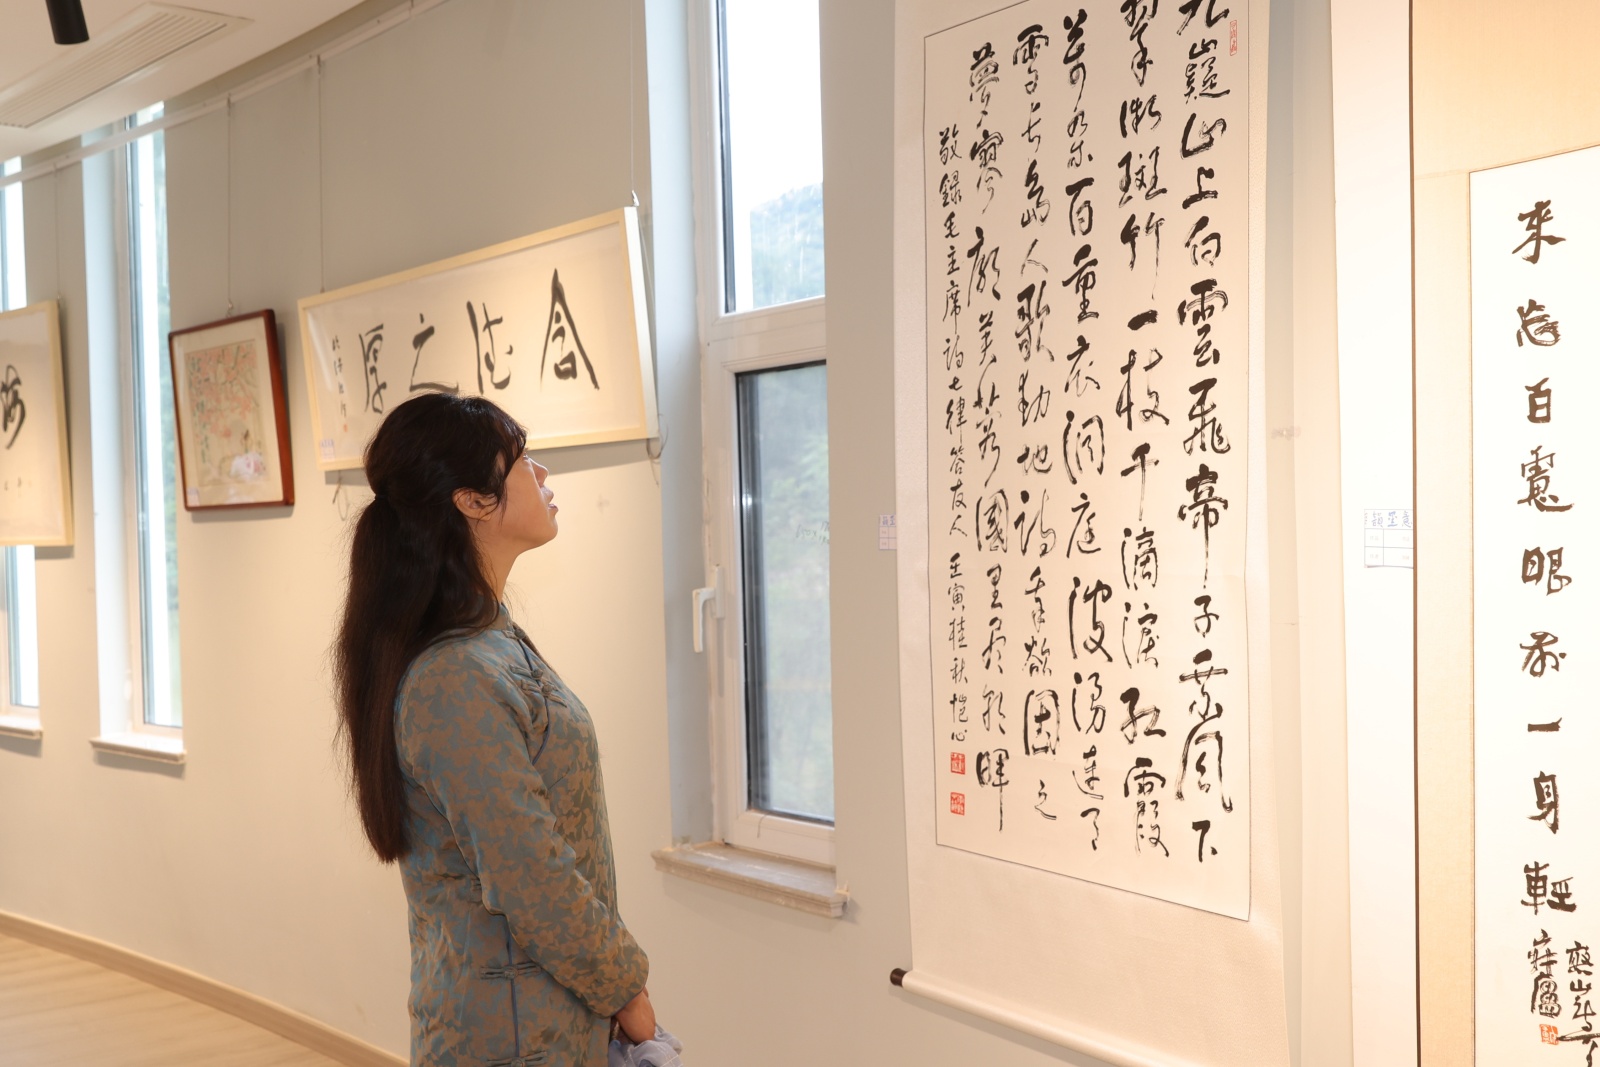 來忘百慮眼前一身輕
九嶷山上白雲飛帝子乘風下
翠微斑竹一枝千滴淚紅霞
萬朵百重衣洞庭波湧連天
雪長島人歌動地詩我欲因之
夢寥廓芙蓉國里盡朝暉
敬録毛主席詩七律答友人 壬寅桂秋恺心
含德之厚